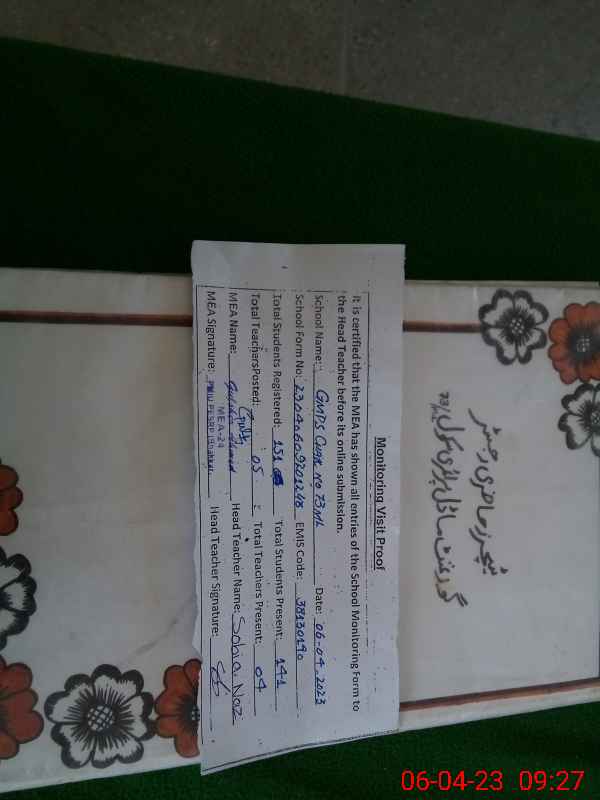 Monitoring Visit Proof
It is certified that the MEA has shown all entries of the School Monitoring Form to
the Head Teacher before its online submission.
School Name: GMPS Chak No 73 ML Date: 06-04-2023
School Form No: 23040609201248 EMIS Code: 38130190
Total Students Registered: 151 Total Students Present: 141
Total TeachersPosted: 05 Total Teachers Present: 04
MEA Name: Head Teacher Name: Sobia Naz
MEA-24
MEA Signature: PMIU PESRP (Bhakkar) Head Teacher Signature:
ٹیچرز حاضری رجسٹر
گورنمنٹ ماڈل پرائمری سکول
06-04-23 09:27